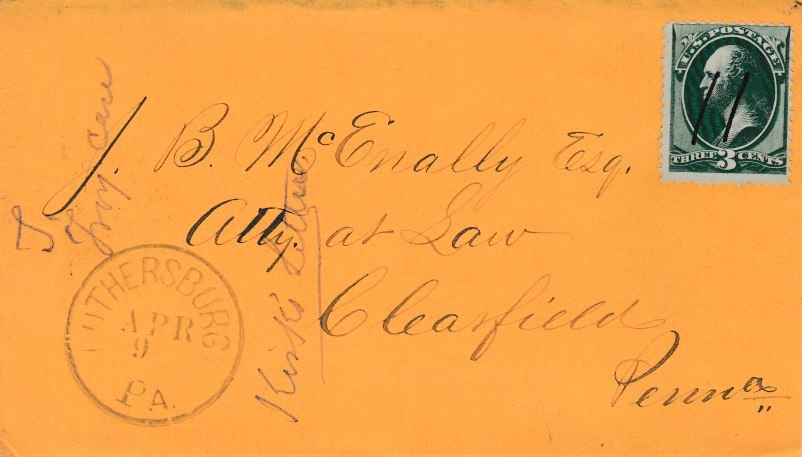 U.S. POSTAGE
THREE 3 CENTS
J. B. McEnally Esq.
Atty. at Law
Clearfield
Penna
LUTHERSBURG
APR
9
PA.
Kirk's Letter
care